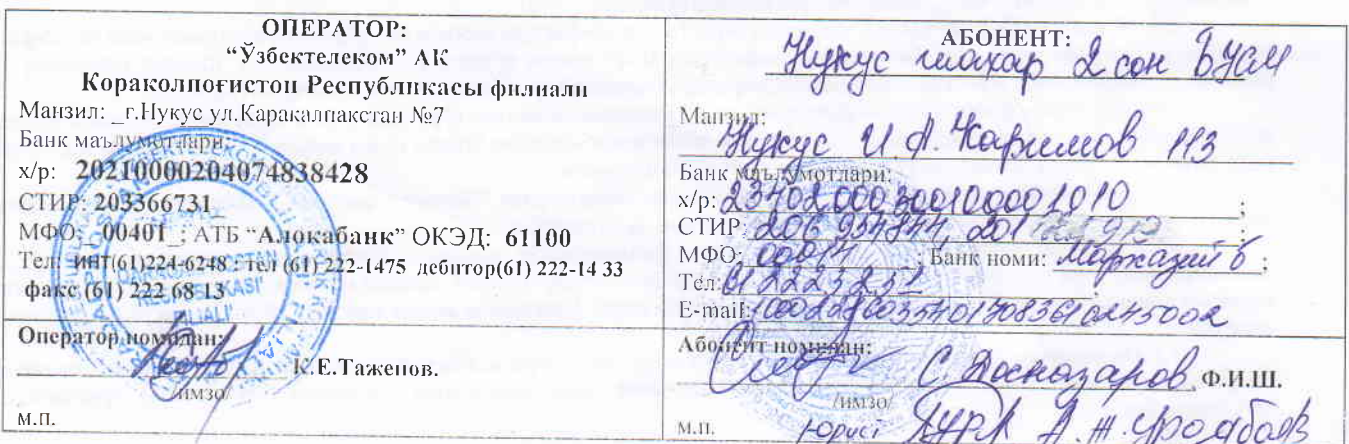 ОПЕРАТОР:
“Ўзбектелеком” АК
Кораколпоғистон Республикасы филиали
Манзил: _г.Нукус ул.Каракалпакстан №7
Банк маълумотлари:
х/р: 20210000204074838428
СТИР: 203366731_
МФО:_ 00401_; АТБ “Алокабанк” ОКЭД: 61100
Тел: ИНТ(61)224-6248 : тел (61) 222-1475 дебитор(61) 222-14 33
факс (61) 222 68 13
Оператор номидан:
К.Е.Таженов.
/имзо/
М.П.
АБОНЕНТ:
Нукус шахар 2 сон БУСМ
Манзил:
Нукус И А. Каримов 113
Банк маълумотлари:
х/р: 23402000300100001010;
СТИР: 201
МФО: 00014; Банк номи: Марказий б;
Тел: 61 2223252
E-mail:
Абонент номидан:
С. Досназаров Ф.И.Ш.
/имзо/
М.П. Юрист